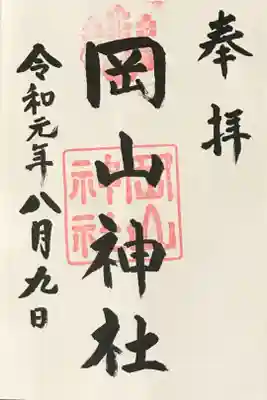 奉拝
岡山神社
岡山
神社
令和元年八月九日